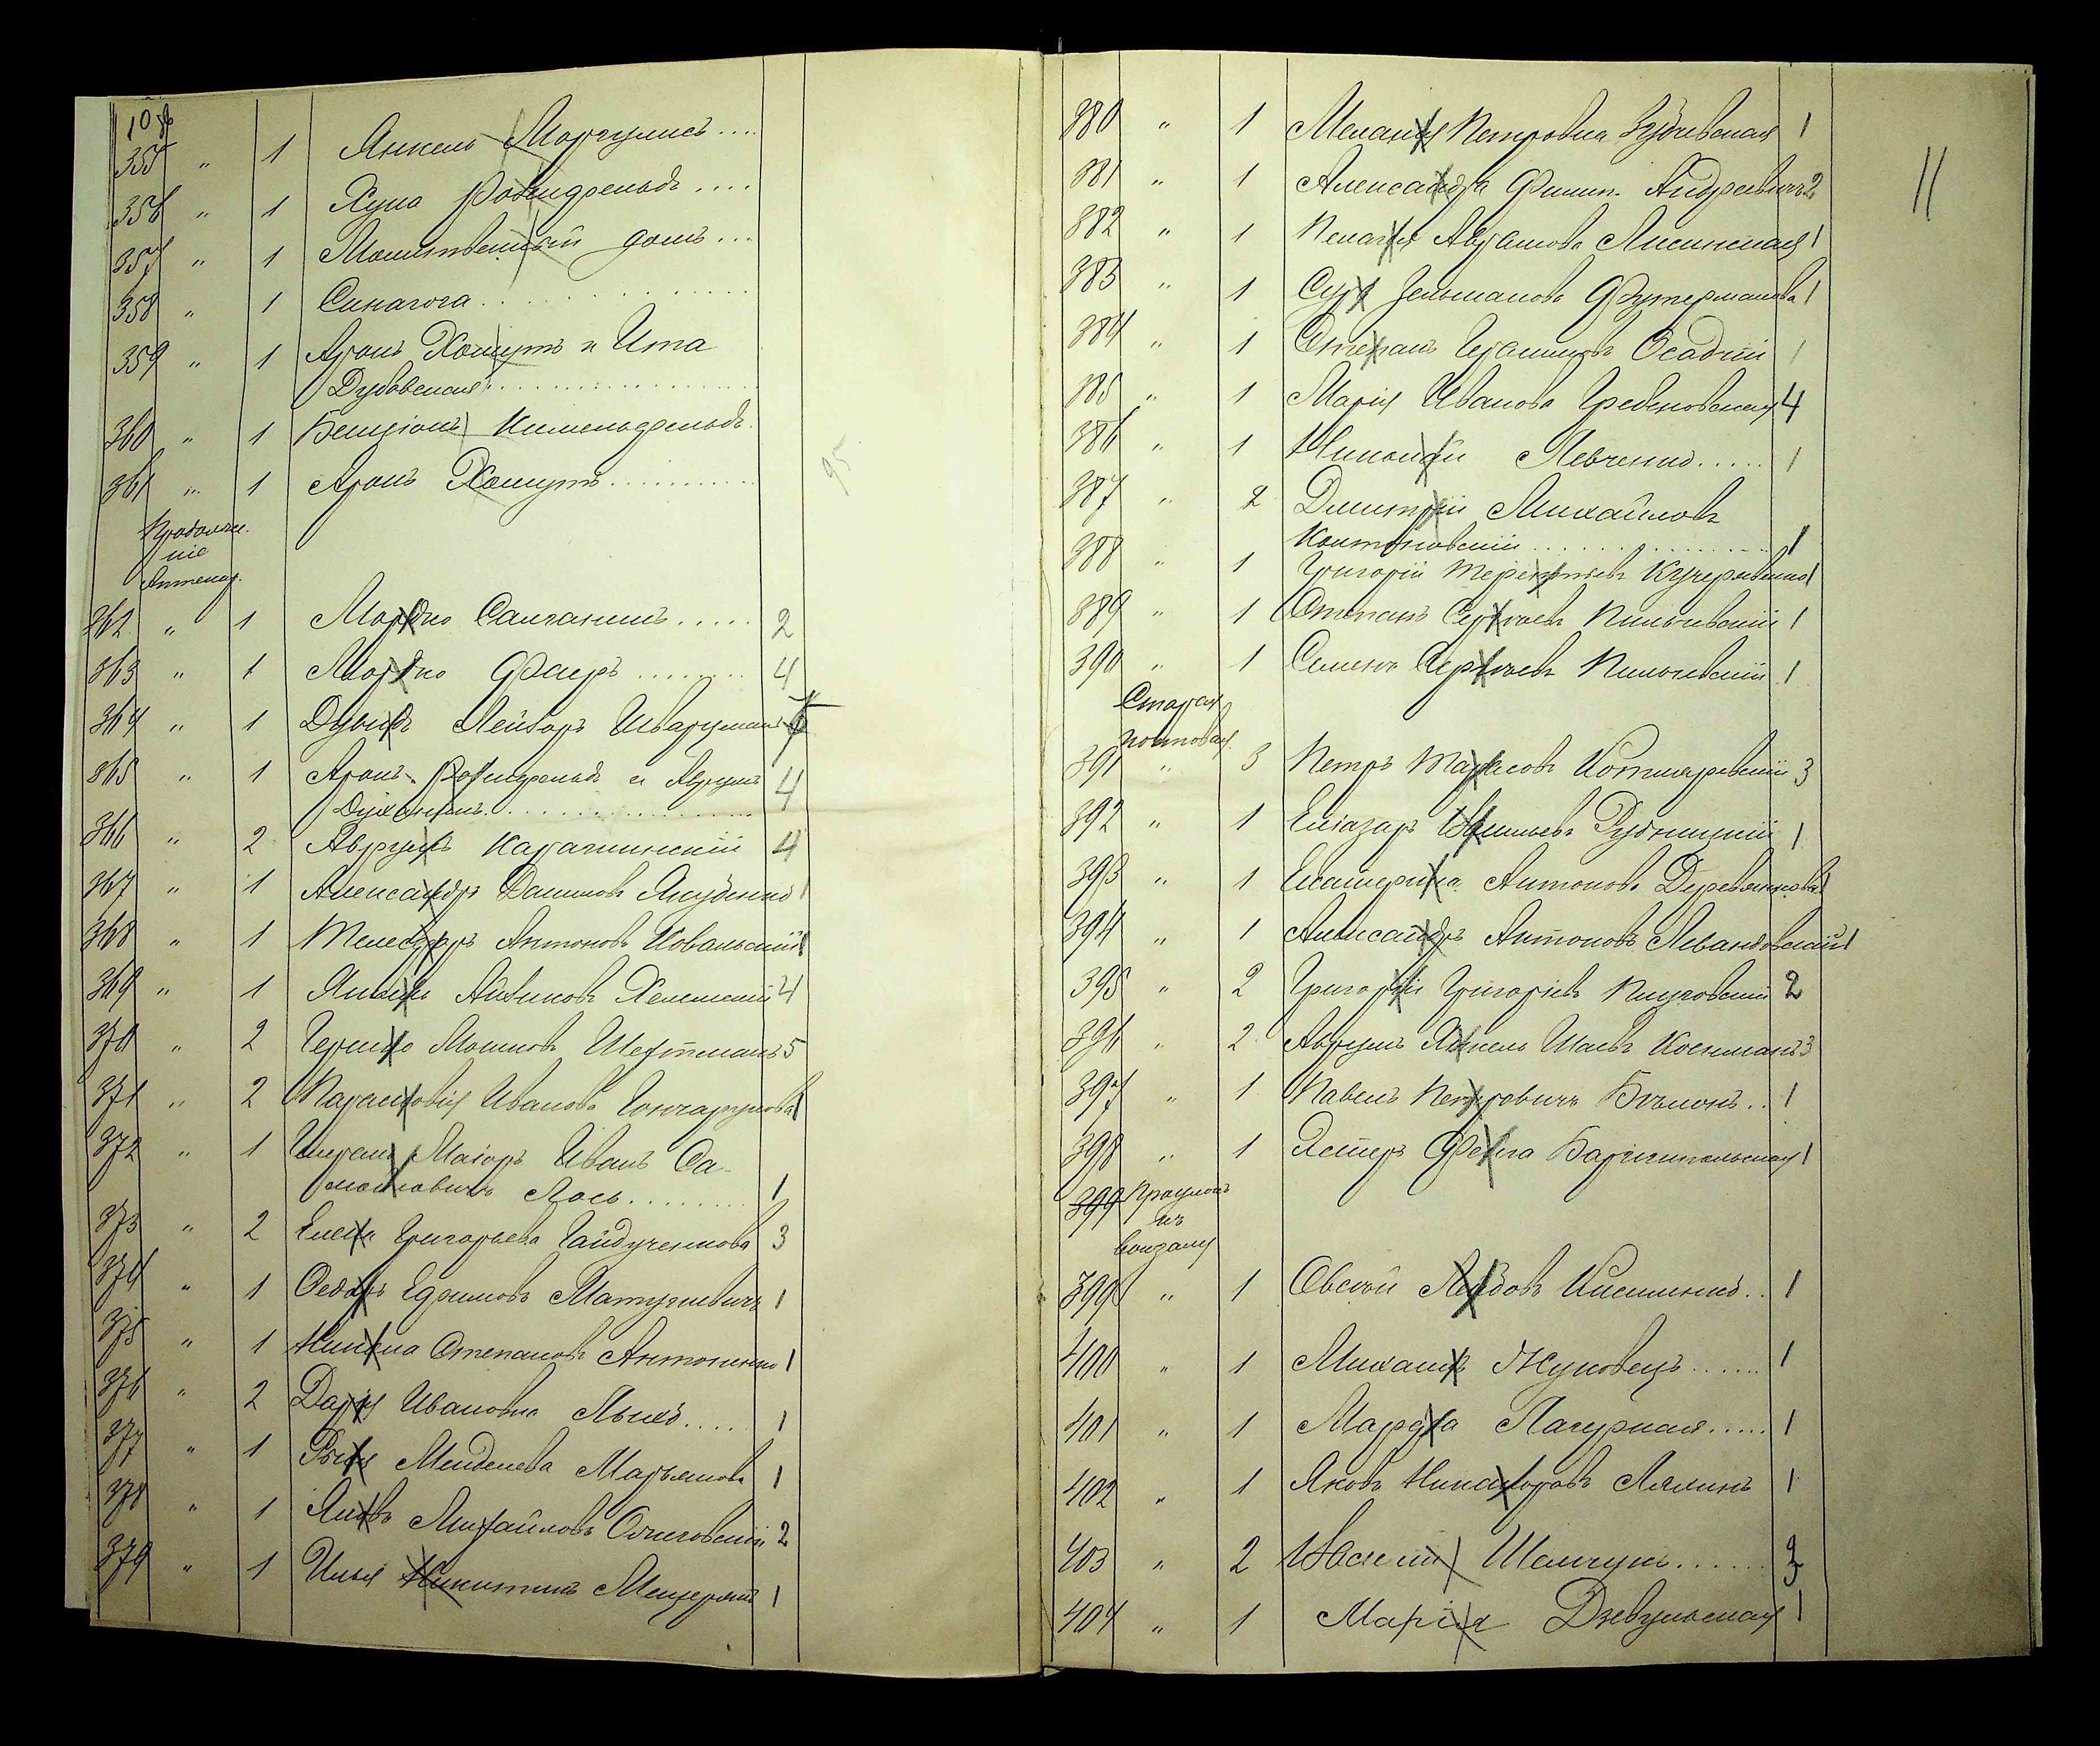 10
355 " 1 Янкель Маргулисъ ....
356 " 1 Хуна Розенфельдъ ....
357 " 1 Молитвенный домъ ...
358 " 1 Синагога ..............
359 " 1 Аронъ Хомутъ и Ита
Дубовская ..............
360 " 1 Бенціонъ Кимельфельдъ.
361 " 1 Аронъ Хомутъ ...........
95
Продолже-
ніе
Аптекар.
362 " 1 Мордко Салганикъ ..... 2
363 " 1 Мордко Фаеръ ........ 4
364 " 1 Дувидъ Лейзоръ Шварцманъ
365 " 1 Аронъ Розенфельдъ и Аврумъ 4
366 " 2 Аврумъ 4
367 " 1 Александръ Даниловъ Якубенко 1
368 " 1 Телесфоръ Антоновъ Ковальскій 1
369 " 1 Янкель 4
370 " 2 Гершко Мошковъ 5
371 " 2 Парасковія Иванова Гончарукова 1
372 " 1 Генералъ Маіоръ Иванъ Са-
мойловичъ Лось ......... 1
373 " 2 Елена Григорьева Гайдученкова 3
374 " 1 Федоръ Ефимовъ Матушевичъ 1
375 " 1 Никита Степановъ Антоненко 1
376 " 2 Дарія Ивановна .... 1
377 " 1 Менделева Марьямова 1
378 " 1 Яковъ Михайловъ Ольшевскій 2
379 " 1 Илья Никитинъ Мещерякъ 1
11
380 " 1 Меланія Петровна 1
381 " 1 Александра Филип. Андреевичъ 2
382 " 1 Пелагія Абрамова Лисинская 1
383 " 1 Сура Зельманова Футерманова 1
384 " 1 Степанъ Осадчій 1
385 " 1 Марія Иванова Гребеновская 4
386 " 1 Николай Левченко ..... 1
387 " 2 Дмитрій Михайловъ
Контоновскій .............. 1
388 " 1 Григорій Терентьевъ Кучеровенко 1
389 " 1 Степанъ Сергѣевъ Пильчевскій 1
390 " 1 Семенъ Сергѣевъ Пильчевскій 1
Старая
почтовая.
391 " 3 Петръ Тарасовъ Котляревскій 3
392 " 1 Елеазаръ Васильевъ Рудницкій 1
393 " 1 Екатерина Антонова Деревянкова 1
394 " 1 Александръ Антоновъ Левандовскій 1
395 " 2 Григорій Григорьевъ 2
396 " 2 Аврумъ Янкель Шаевъ 3
397 " 1 Павелъ Петровичъ Бѣлонъ .. 1
398 " 1 Эстеръ Фейга 1
399 Проулокъ
къ
вокзалу
399 " 1 Овсѣй Кисиленко .. 1
400 " 1 Михаилъ Жуковецъ ...... 1
401 " 1 Марфа ..... 1
402 " 1 Яковъ Никаноровъ Лялинъ 1
403 " 2 Василій Шемчукъ ......
404 " 1 Марія Дзевульская 1